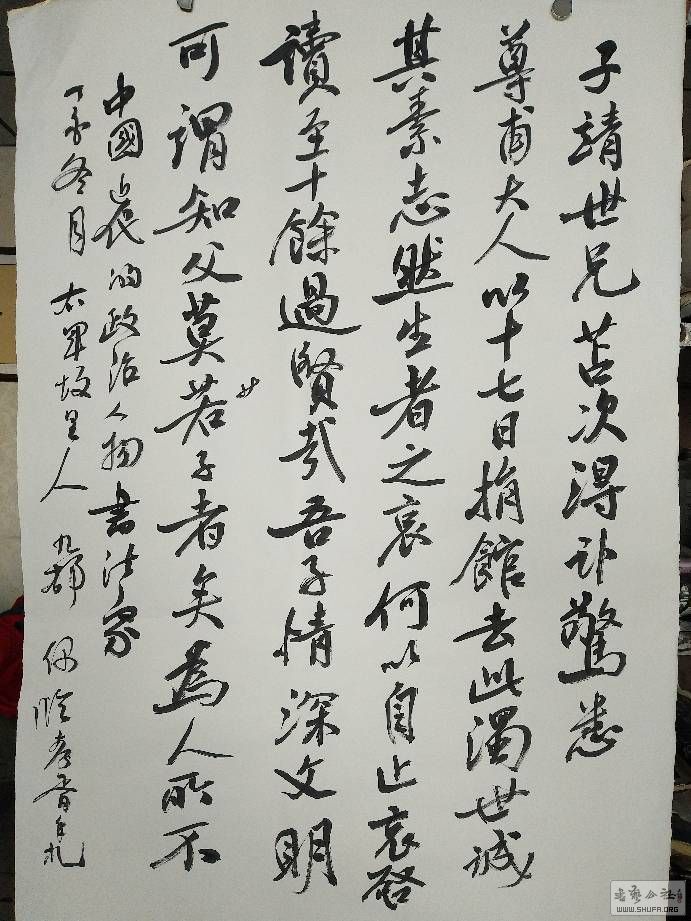 子靖世兄苫次得訃驚悉
尊甫大人以十七日捐館去此濁世誠
其素志然生者之哀何以自止哀啓
讀至十餘過賢哉吾子情深文明
可謂知父莫若子者矣為人所不
廿
中國近代的政治人物書法家
丁酉冬月 右軍故里人 九都 偶臨孝胥手札
书艺公社
WWW.SHUFA.ORG